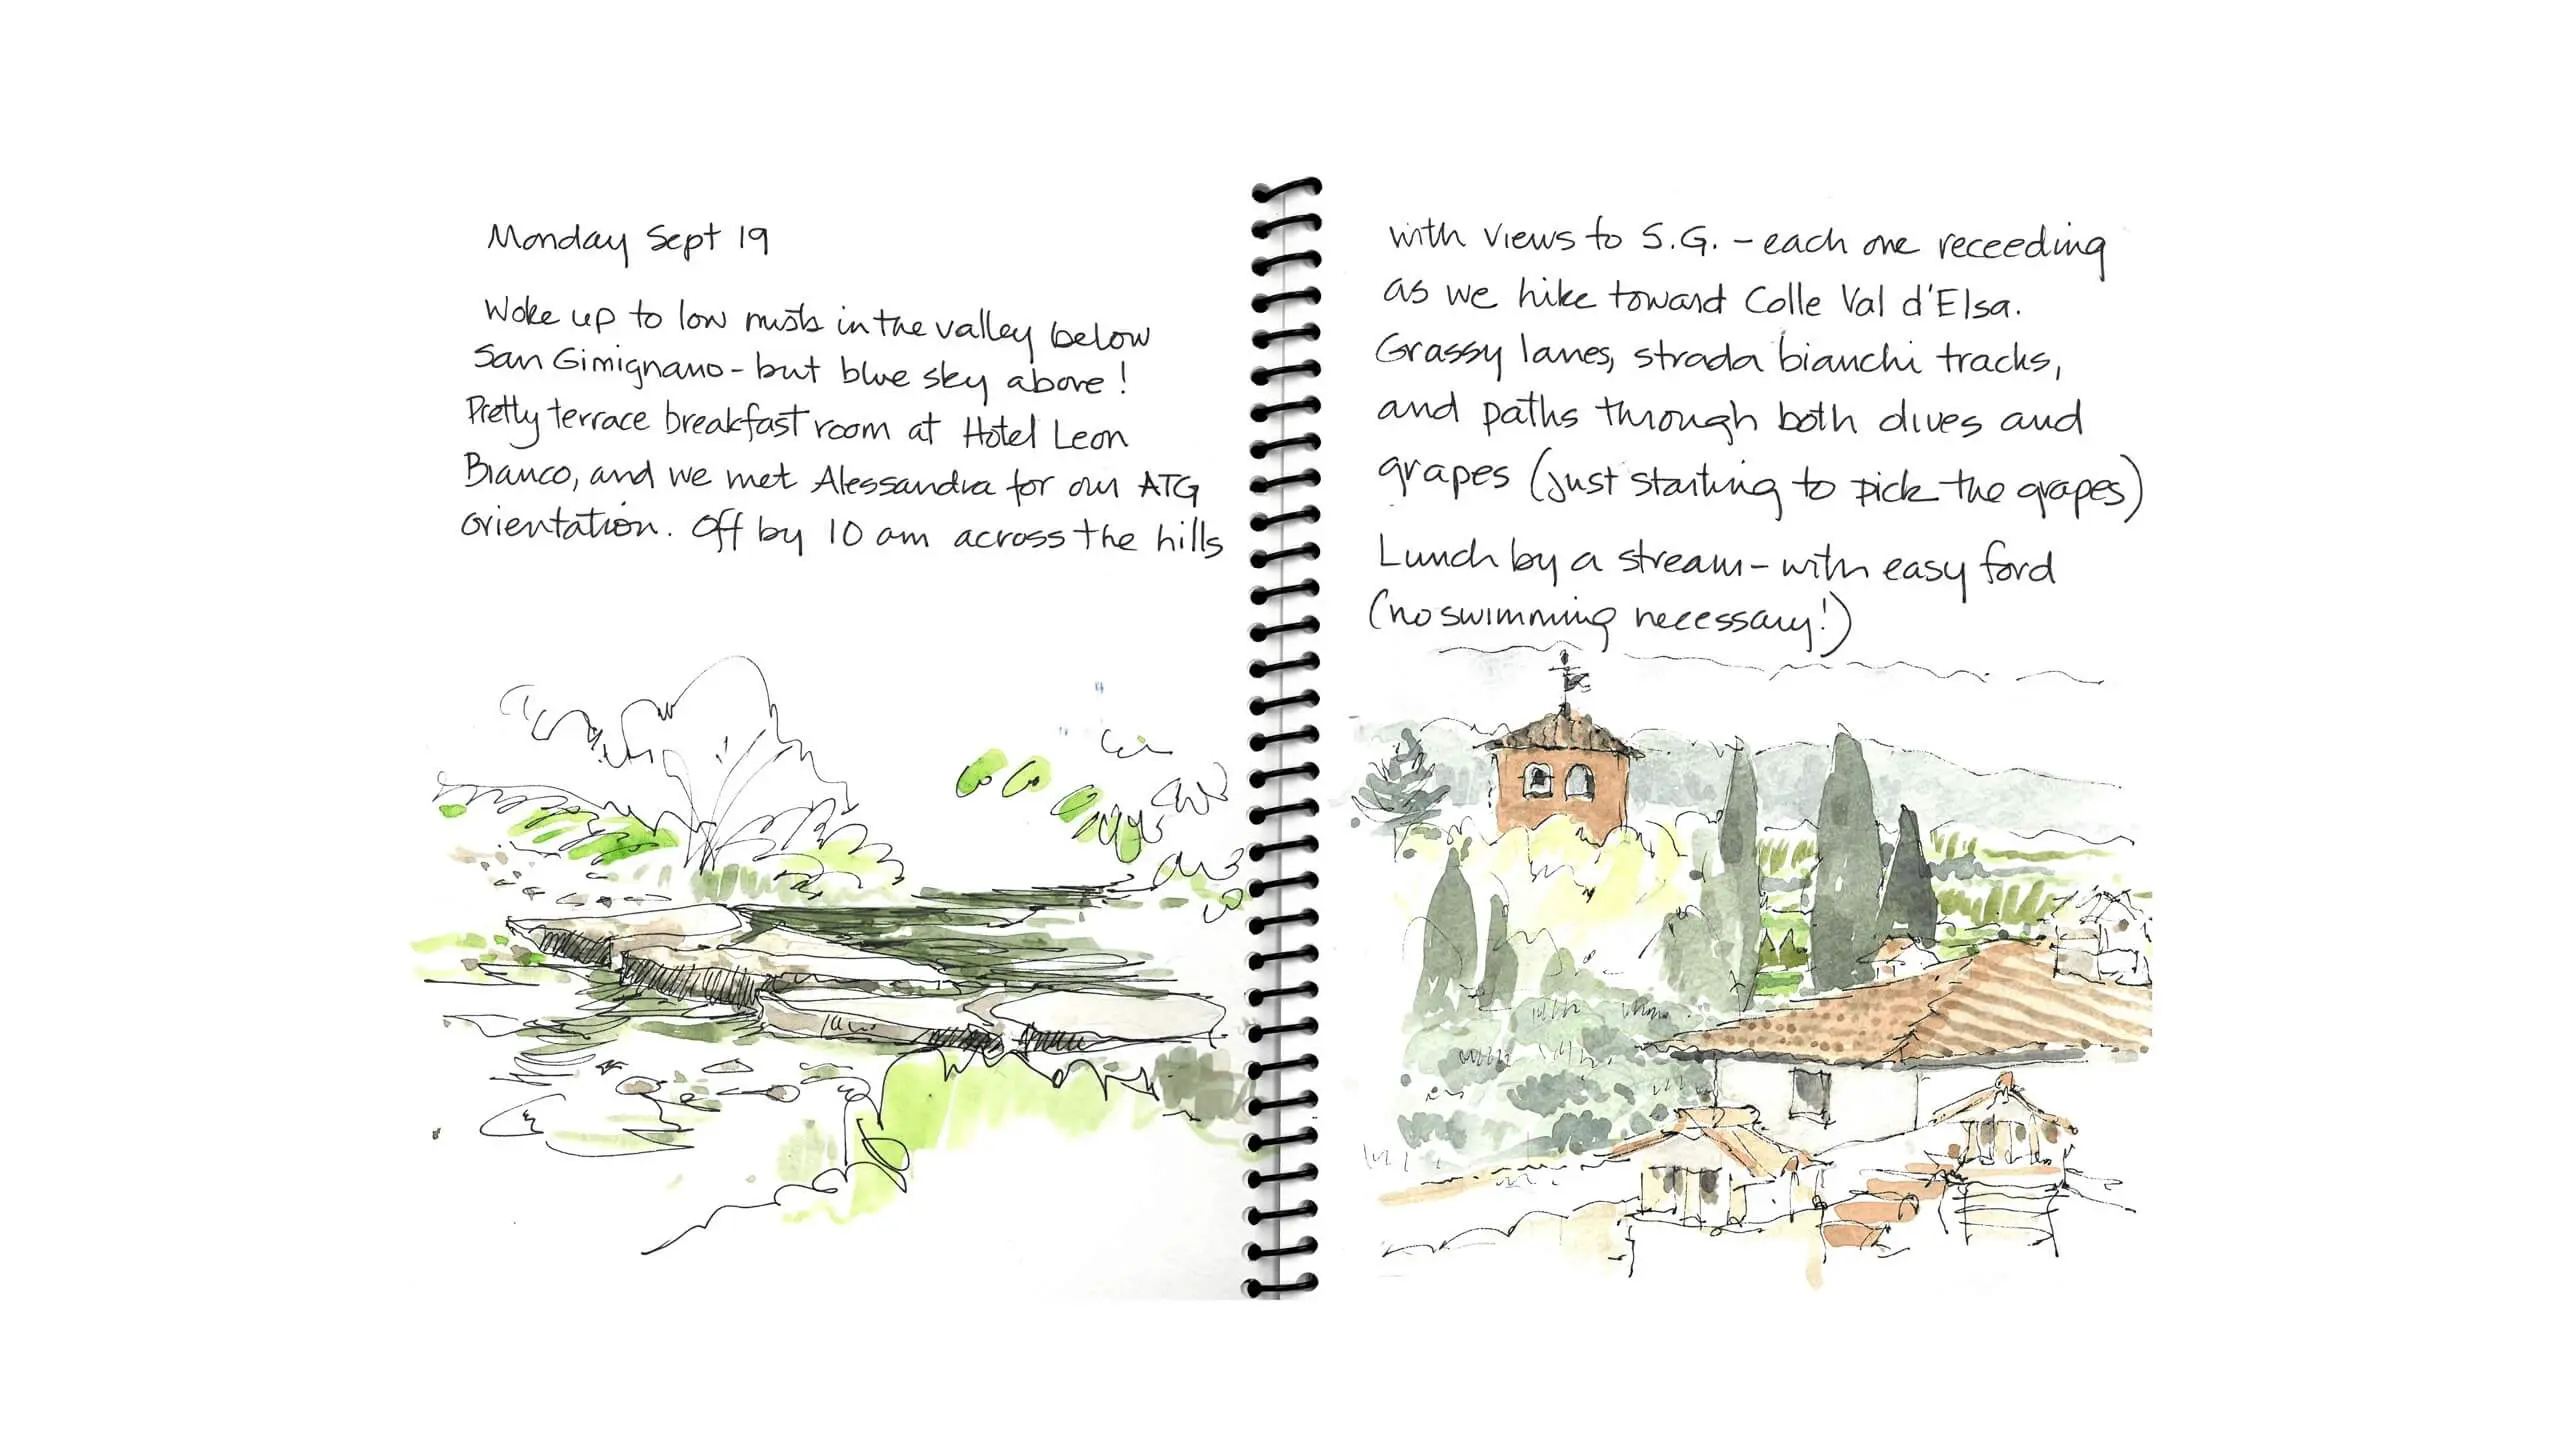 Monday Sept 19
Woke up to low mists in the valley below
San Gimignano - but blue sky above!
Pretty terrace breakfast room at Hotel Leon
Bianco, and we met Alessandra for our ATG
orientation. Off by 10 am across the hills
with views to S.G. - each one receeding
as we hike toward Colle Val d'Elsa.
Grassy lanes, strada bianchi tracks,
and paths through both olives and
grapes (just starting to pick the grapes)
Lunch by a stream - with easy ford
(no swimming necessary!)